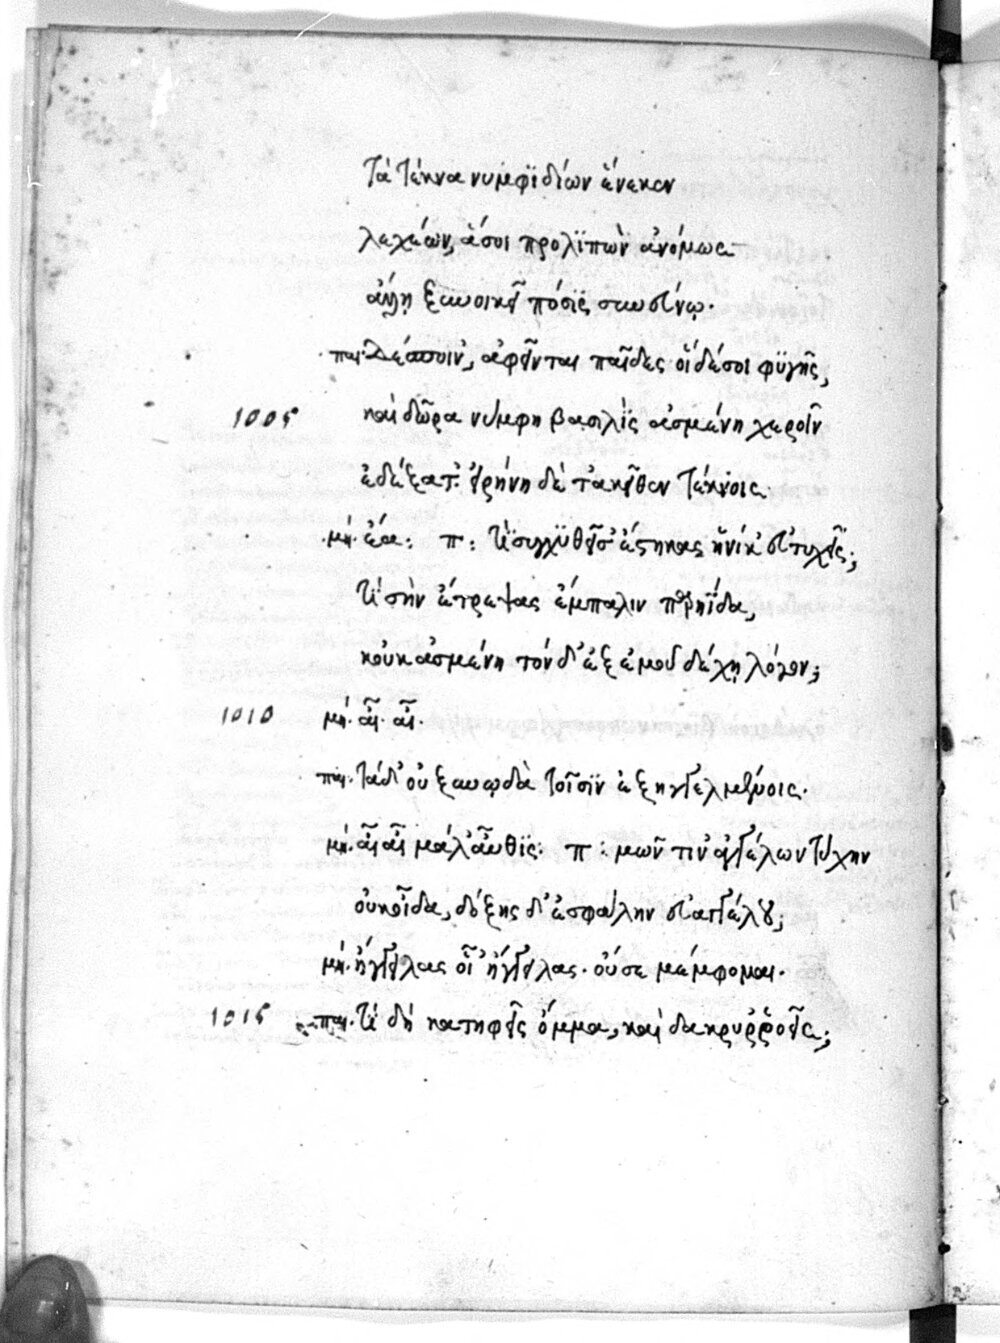 Τὰ τέκνα νυμφϊδίων ἕνεκεν
λεχέων, ἅσοι προλϊπὼν ἀνόμως
ἄλλη ξυνοικεῖ πόσϊς συνεύνῳ.
παι. Δέσποιν, ἀφεῖνται παῖδες οἵδέσοι φϋγῆς,
1005 καὶ δῶρα νύμφη βασιλὶς ἀσμένη χεροῖν
ἐδέξατ. εἰρήνη δὲ τἀκεῖθεν τέκνοις
μη. ἔα: π: τί συγχϋθεῖσ' ἕστηκας ἡνίκ' εὐτυχεῖς;
τί σὴν ἔτρεψας ἔμπαλιν παρηΐδα,
κοὐκ ἀσμένη τόνδ' ἐξ ἐμοῦ δέχη λόγον;
1010 μη. αἶ. αἶ.
παι. Τάδ' οὐ ξυνῳδὰ τοῖσϊν ἐξηγγελμένοις.
μη. αἶ αἶ μάλ' αὖθϊς. π: μῶν τιν' ἀγγέλων τύχην
οὐκ οἶδα, δόξης δ' ἐσφάλην εὐαγγέλου;
μη. ἤγγειλας οἷ' ἤγγειλας. οὔσε μέμφομαι.
1015 παι. τί δὴ κατηφεῖς ὄμμα, καὶ δακρυῤῥοεῖς;